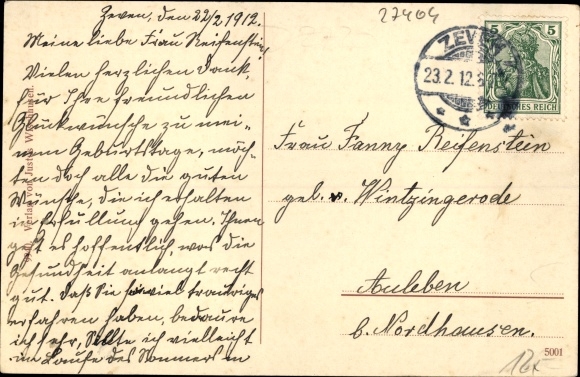 Zeven, den 22/2 1912.
Meine liebe Frau Reifenstein!
Vielen herzlichen Dank,
für Ihre freundlichen
Glückwünsche zu mei-
nem Geburtstage, möch-
ten doch alle die guten
Wünsche, die ich erhalten
in Erfüllung gehen, Ihnen
geht es hoffentlich, was die
Gesundheit anlangt recht
gut. Daß Sie so viel trauriges
erfahren haben, bedaure
ich sehr, Sollte ich vielleicht
im Laufe des Sommers in
27404
ZEVEN
23.2.12.
5 5
DEUTSCHES REICH
Frau Fanny Reifenstein
geb. v. Wintzingerode
Auleben
b. Nordhausen.
5001
Verlag von Justus